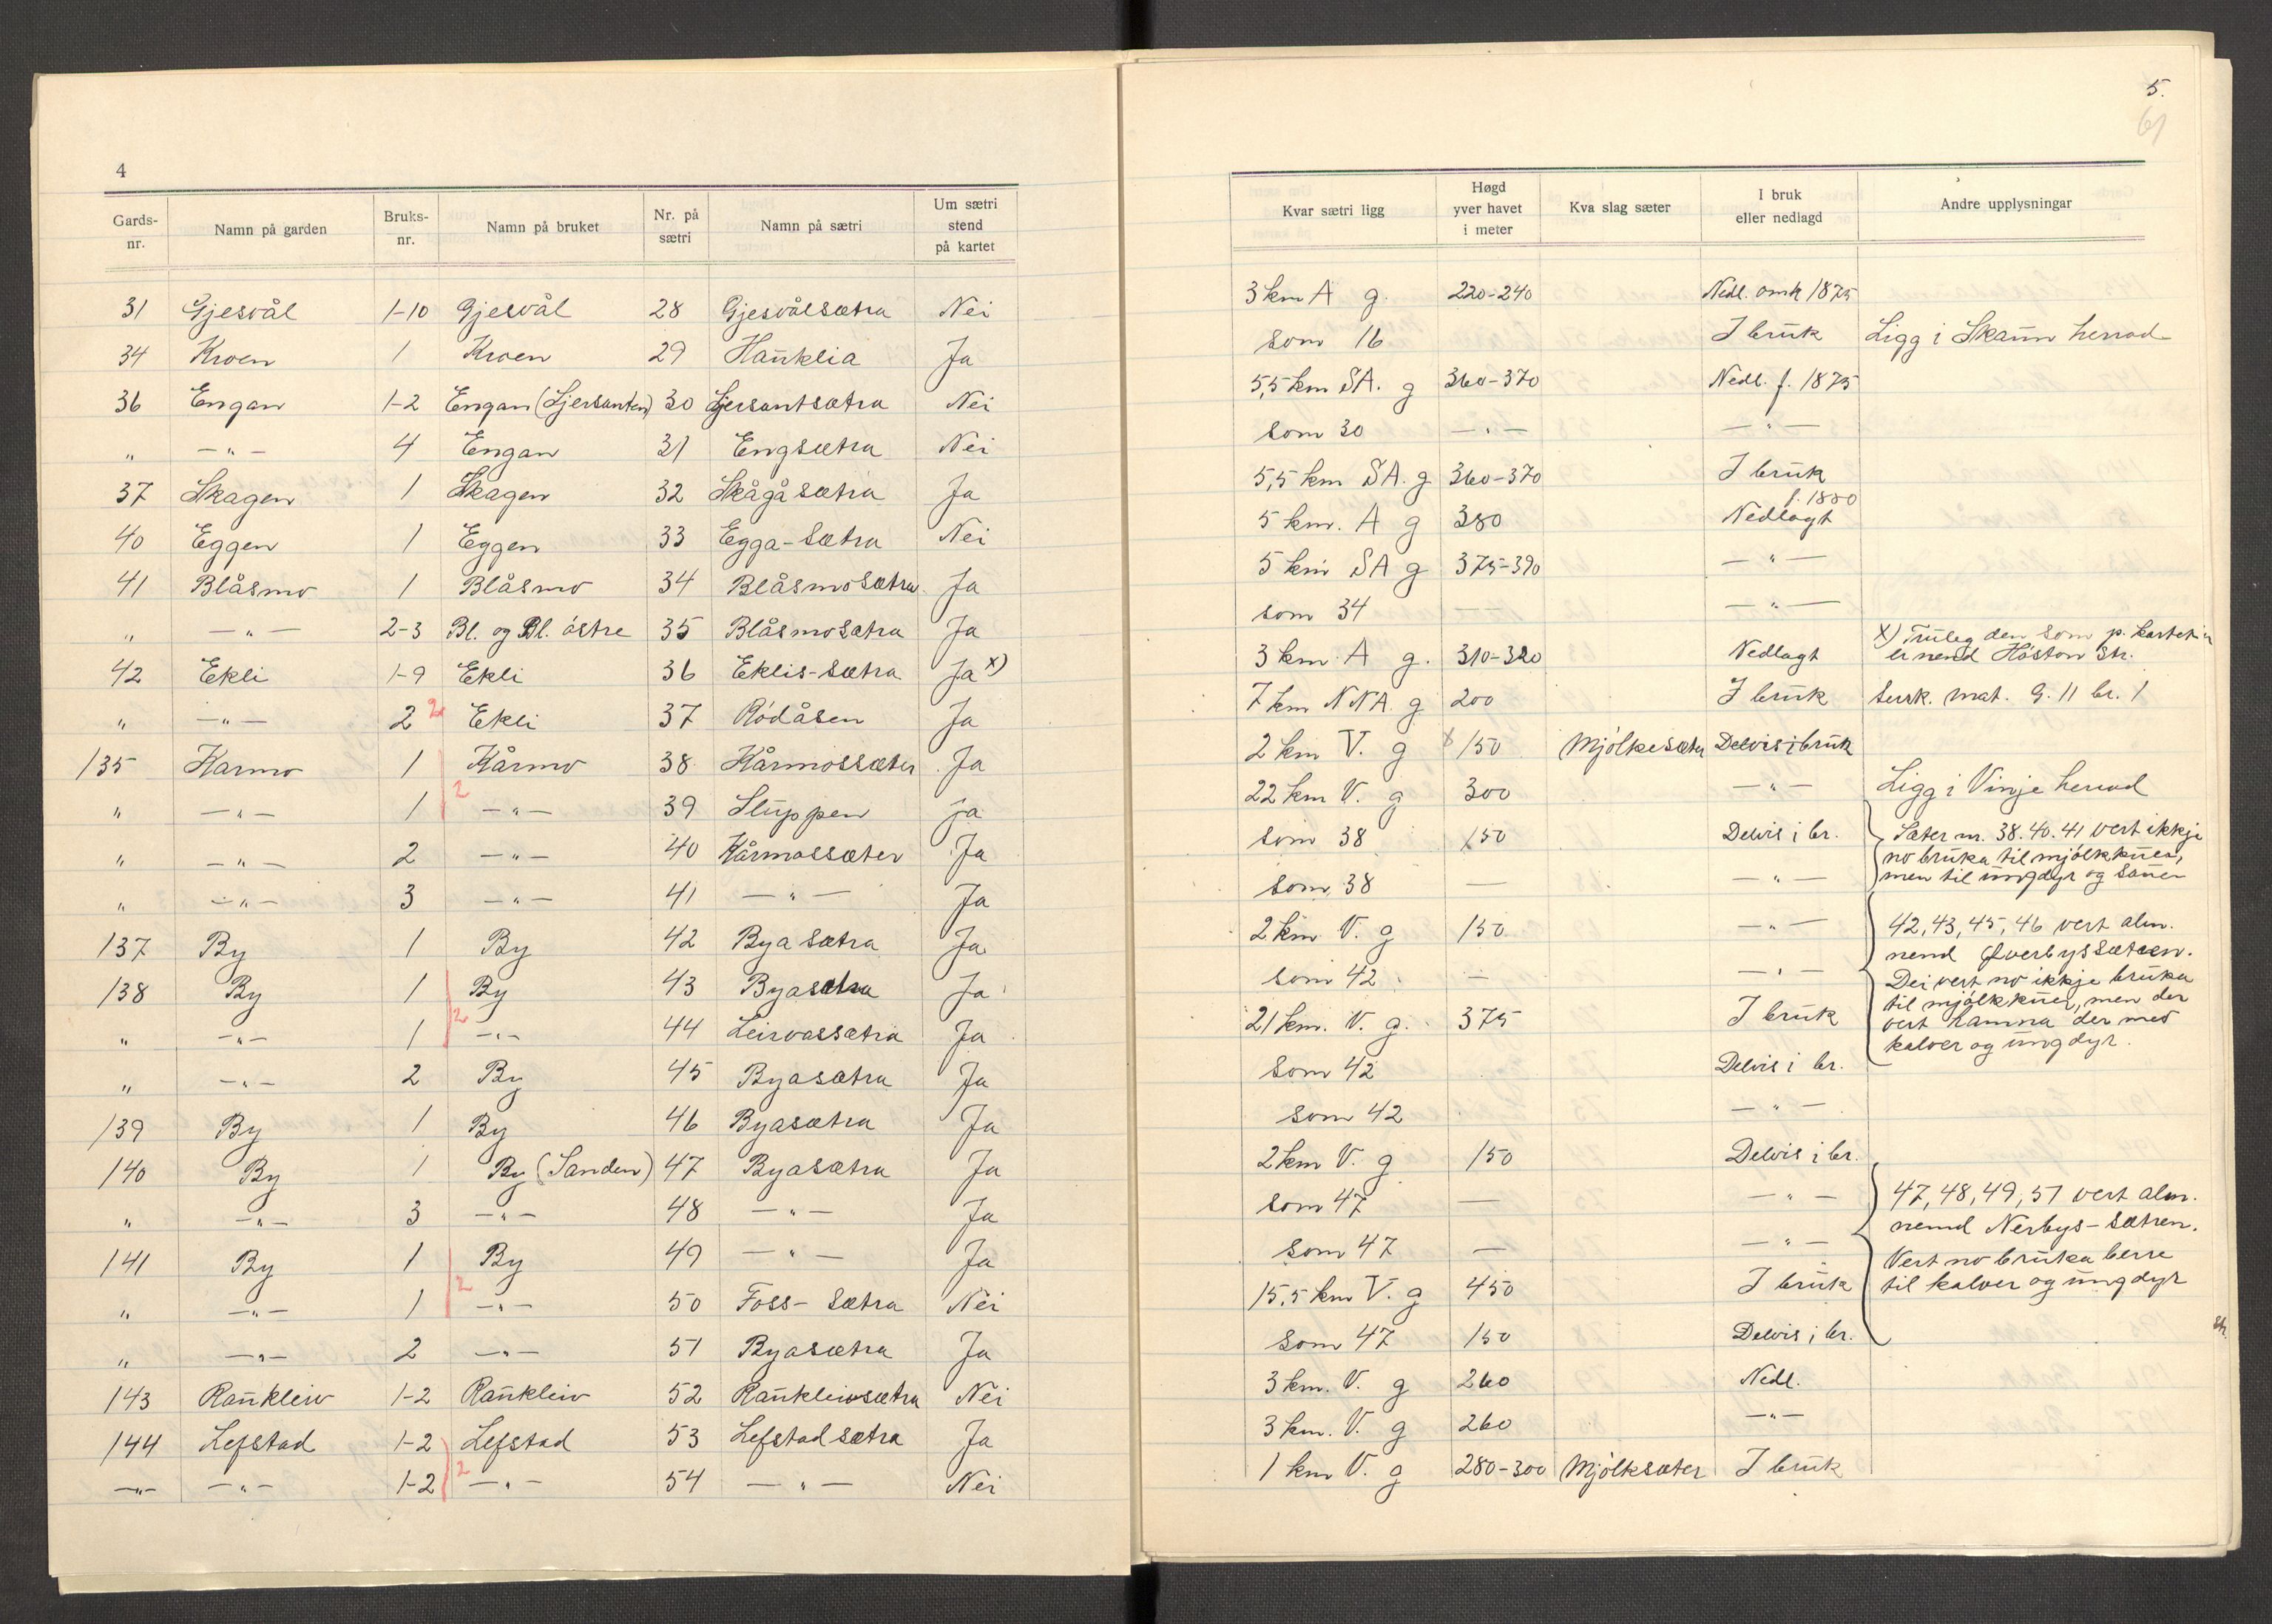 4
Gards-nr. Namn på garden Bruks-nr. Namn på bruket Nr. på sætri Namn på sætri Um sætri stend på kartet
31 Gjesvål 1-10 Gjesvål 28 Gjesvålsætra Nei
34 Kroen 1 Kroen 29 Hauklia Ja
36 Engan 1-2 Engan (Ljersanten) 30 Ljersantsætra Nei
" —"— 4 Engan 31 Engsætra Nei
37 Skagen 1 Skagen 32 Skågåsætra Ja
40 Eggen 1 Eggen 33 Egga-Sætra Nei
41 Blåsmo 1 Blåsmo 34 Blåsmosætra Ja
" —"— 2-3 Bl. og Bl. østre 35 Blåsmosætra Ja
42 Ekli 1-9 Ekli 36 Eklis-Sætra Ja x)
" —"— 2 2 Ekli 37 Rødåsen Ja
135 Karmo 1 Kårmo 38 Kårmossæter Ja
" —"— 1 2 —"— 39 Sluppen ja
" —"— 2 —"— 40 Kårmossæter Ja
" —"— 3 —"— 41 —"— Ja
137 By 1 By 42 Byasætra Ja
138 By 1 By 43 Byasætra Ja
" —"— 1 2 —"— 44 Leirvassætra Ja
" —"— 2 By 45 Byasætra Ja
139 By 1 By 46 Byasætra Ja
140 By 1 By (Sanden) 47 Byasætra Ja
" —"— 3 —"— 48 —"— Ja
141 By 1 By 49 —"— Ja
" —"— 1 2 —"— 50 Foss-Sætra Nei
" —"— 2 —"— 51 Byasætra Ja
143 Raukleiv 1-2 Raukleiv 52 Raukleivsætra Nei
144 Lefstad 1-2 Lefstad 53 Lefstadsætra Ja
—"— —"— 1-2 2 —"— 54 —"— Nei
5.
61
Kvar sætri ligg Høgd yver havet i meter Kva slag sæter I bruk eller nedlagd Andre upplysningar
3 km A g. 220-240 Nedl. omk 1875
som 16 I bruk Ligg i Skaun herrad
5,5 km SA. g 360-370 Nedl. f. 1875
som 30 —"— —"—
5,5 km SA. g 360-370 I bruk
5 km. A g 380 Nedlagt f. 1880
5 km SA g 375-390 —"—
som 34 —— —"—
3 km A g. 310-320 Nedlagt x) Truleg den som p. kartet er nemd Høston Str.
7 km NNA. g 200 I bruk Sersk. mat. G. 11 br. 1
2 km V. g 150 Mjølkesæter Delvis i bruk
22 km V. g 300 —"— Ligg i Vinje herrad
som 38 150 Delvis i br. Sæter nr. 38. 40. 41 vert ikkje
no bruka til mjølkkuer,
som 38 — —"— men til ungdyr og sauer
2 km V. g 150 —"— 42, 43, 45, 46 vert alm.
nemd Øverbyssætren.
som 42 — —"— Dei vert no ikkje bruka
til mjølkkuer, men der
21 km. V. g. 375 I bruk vert hamna der med
kalver og ungdyr.
Som 42 Delvis i br.
som 42 —"—
2 km V. g 150 Delvis i br.
som 47 — —"— 47, 48, 49, 51 vert alm.
nemd Nerbys-Sætren.
som 47 — —"— Vert no bruka berre
15,5 km V. g 450 I bruk til kalver og ungdyr
som 47 150 Delvis i br.
3 km. V. g 260 Nedl.
3 km. V. g 260 —"—
1 km V. g 280-300 Mjølksæter I bruk